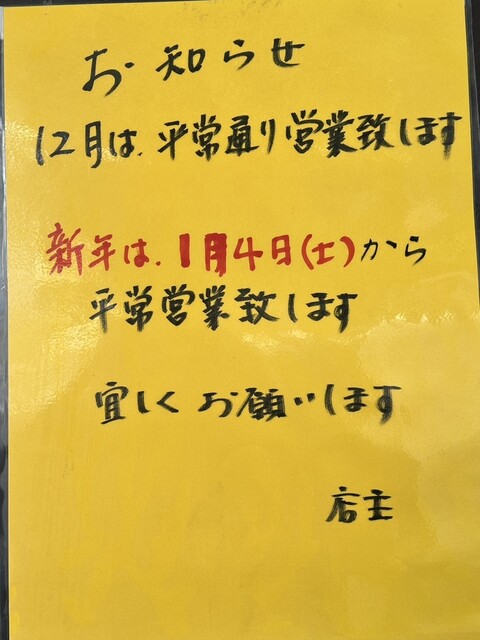 お知らせ
12月は、平常通り営業致します
新年は、1月4日(土)から
平常営業致します
宜しくお願いします
店主